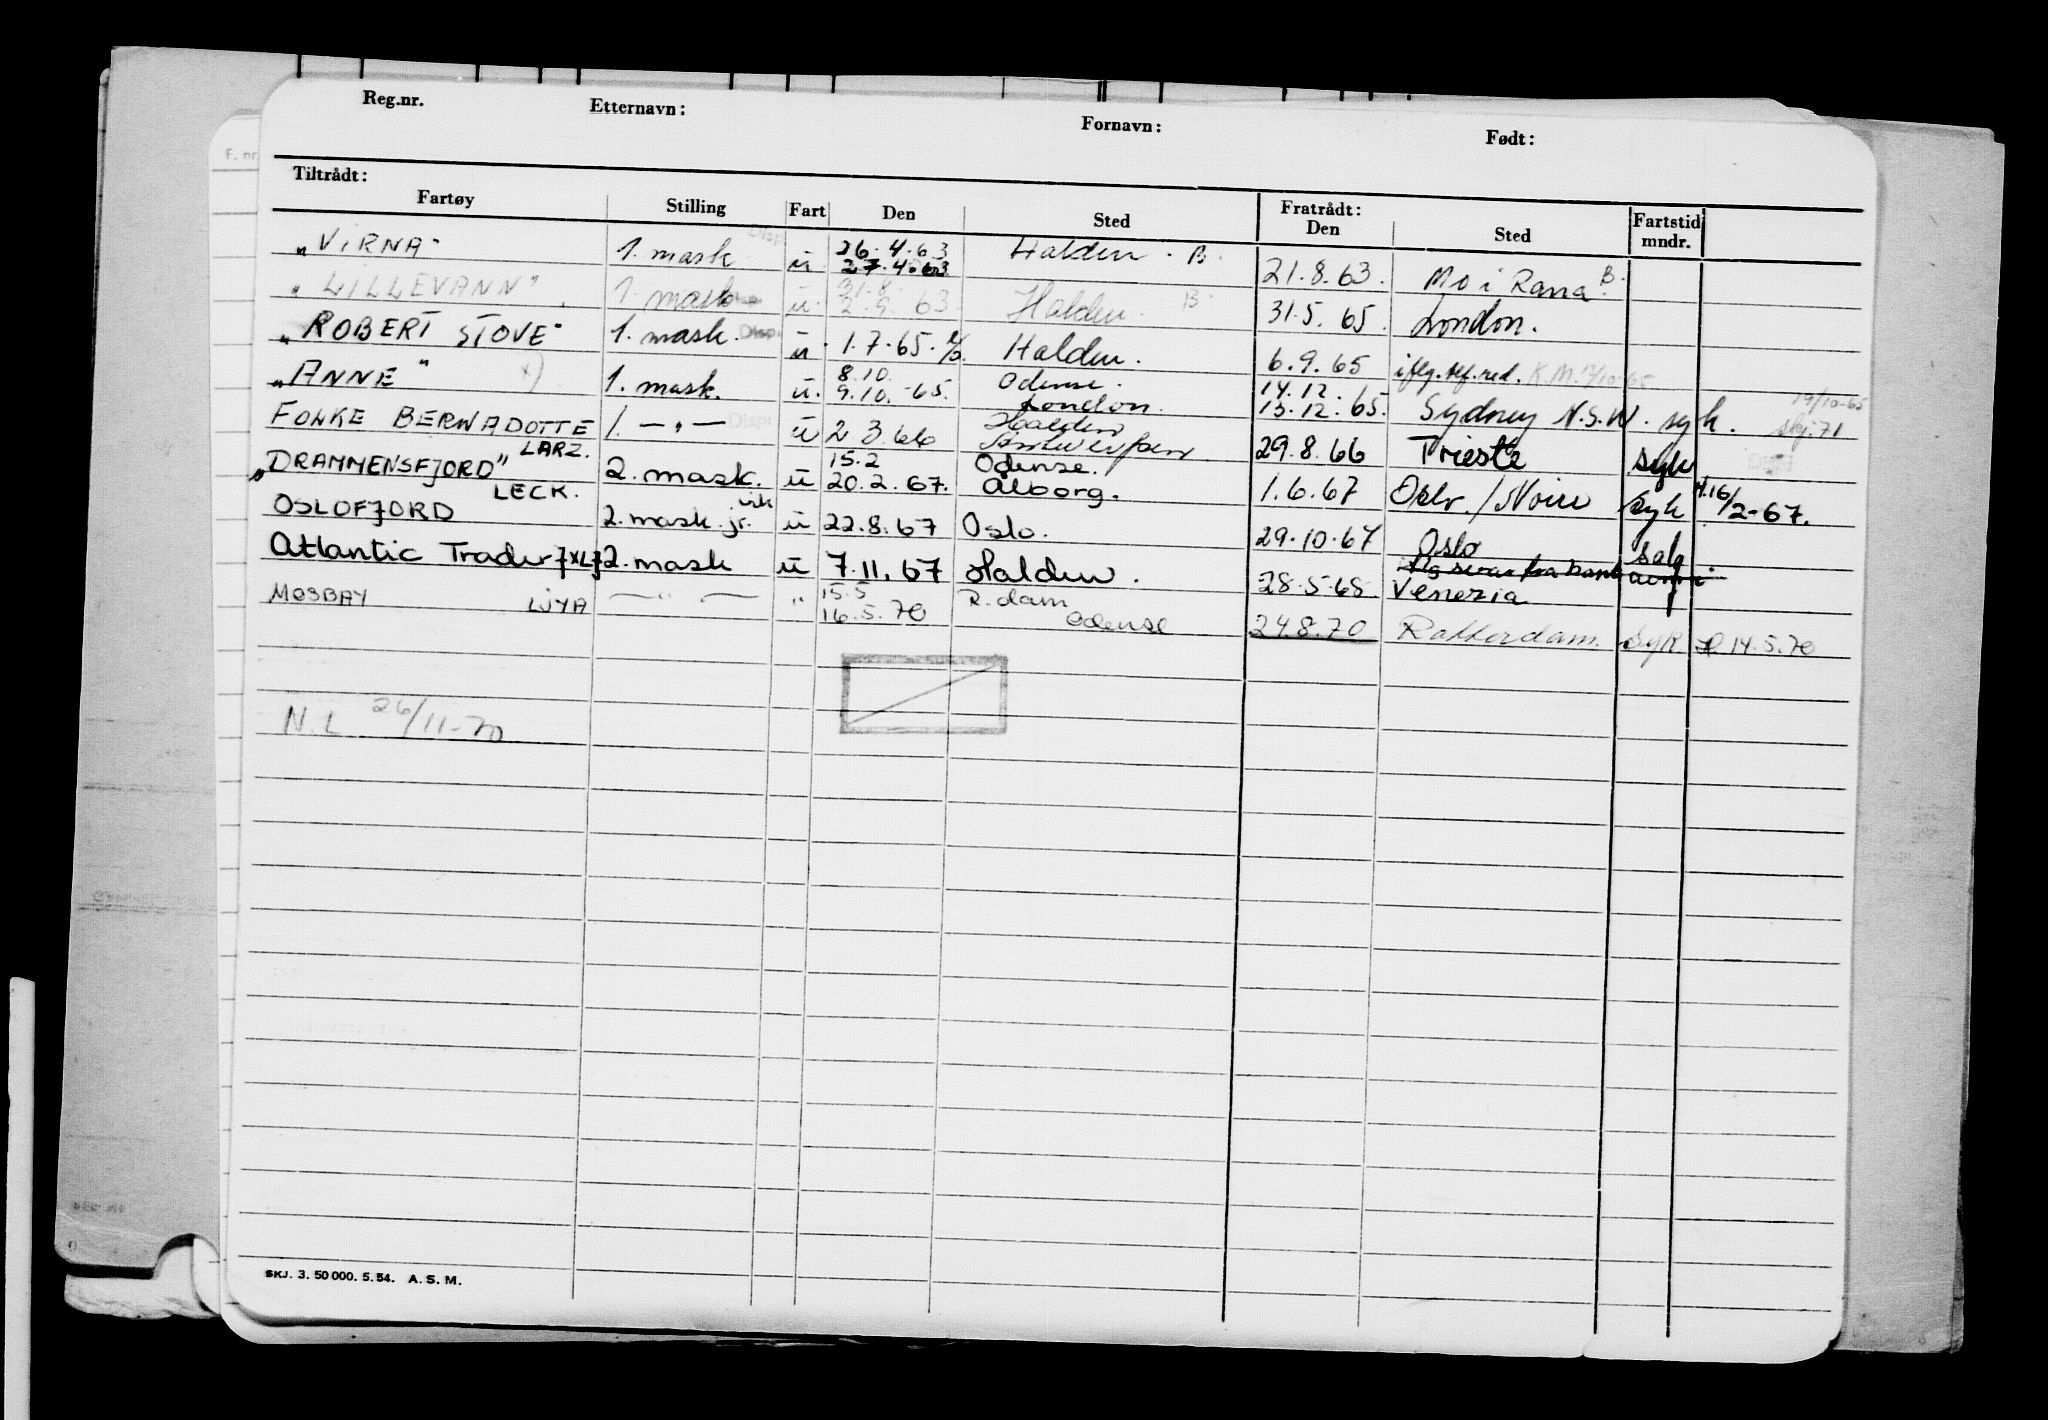 Reg.nr. Etternavn: Fornavn: Født:
Tiltrådt: Fratrådt:
Fartøy Stilling Fart Den Sted Den Sted Fartstid mndr.
"VIRNA" 1. mask u. 26.4.63 27.4.63 Halden. B. 21.8.63. Mo i Rana B.
"LILLEVANN" 1. mask u. 31.8. 2.9.63 Halden. B. 31.5.65. London.
"ROBERT STOVE" 1. mask. Disp. u. 1.7.65. Halden. 6.9.65 iflg. K.M. 65
"ANNE" x) 1. mask. u. 8.10. 9.10.-65. Odense. London. 14.12. 15.12.65. Sydney N.S.W. syk. 19/10-65 skj. 71
FOLKE BERNADOTTE LARZ. 1. —"— Disp u 2 3 66 Halden Antwerpen 29.8.66 Trieste syk
"DRAMMENSFJORD" LECK. 2. mask. u 15.2 20.2.67. Odense. Alborg. 1.6.67 Oslo syk 16/2-67.
OSLOFJORD 2. mask. jr. u 22.8.67 Oslo. 29.10.67 Oslo salg
Atlantic Trader JXLJ 2. mask u 7.11.67 Halden. 28.5.68 Venezia
MOSBAY LJYA —"— " 15.5 16.5.70 R.dam Odense 24.8.70 Rotterdam. Syk 14.5.70
N.L 26/11-70
SKJ. 3. 50 000. 5. 54. A. S. M.
F. nr.